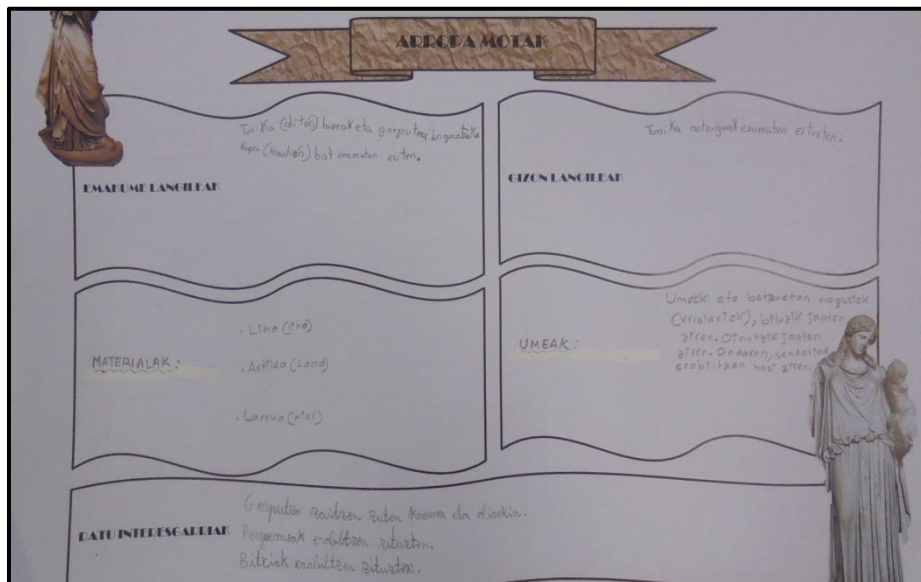 ARROPA MOTAK
Tunika (chitón) luzeak eta gorputza inguratzeko
kapa (himatión) bat eramaten zuten.
EMAKUME LANGILEAK
Tunika motzagoak eramaten zituzten.
GIZON LANGILEAK
MATERIALAK:
· Liho (lino)
· Artilea (Lana)
· Larrua (piel)
Umeek eta batzuetan nagusiek
(kirolariek), biluzik joaten
ziren. Oinutzik joaten
ziren. Ondoren, sandaliak
erabiltzen hasi ziren.
UMEAK:
DATU INTERESGARRIAK
Gorputza zaitzen zuten krema eta olioekin.
Perfumeak erabiltzen zituzten.
Bitxiak erabiltzen zituzten.